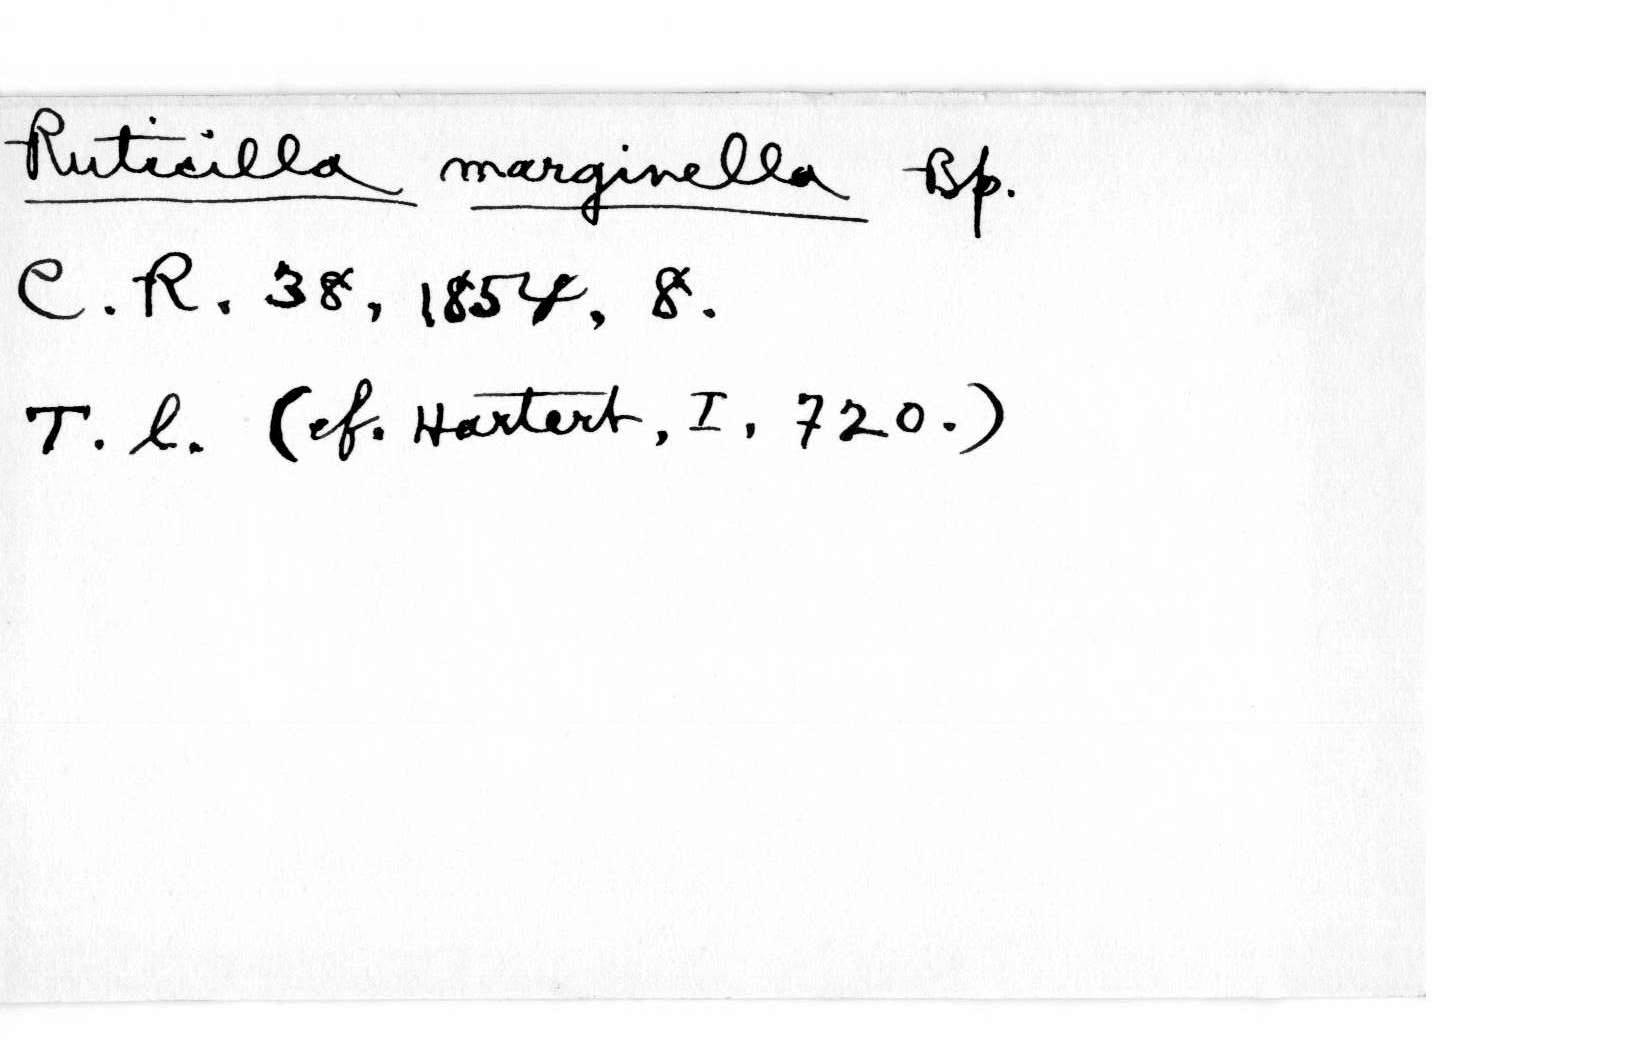 Ruticilla marginella Bp.
C. R. 38, 1854, 8.
T. l. (cf. Hartert, I, 720.)